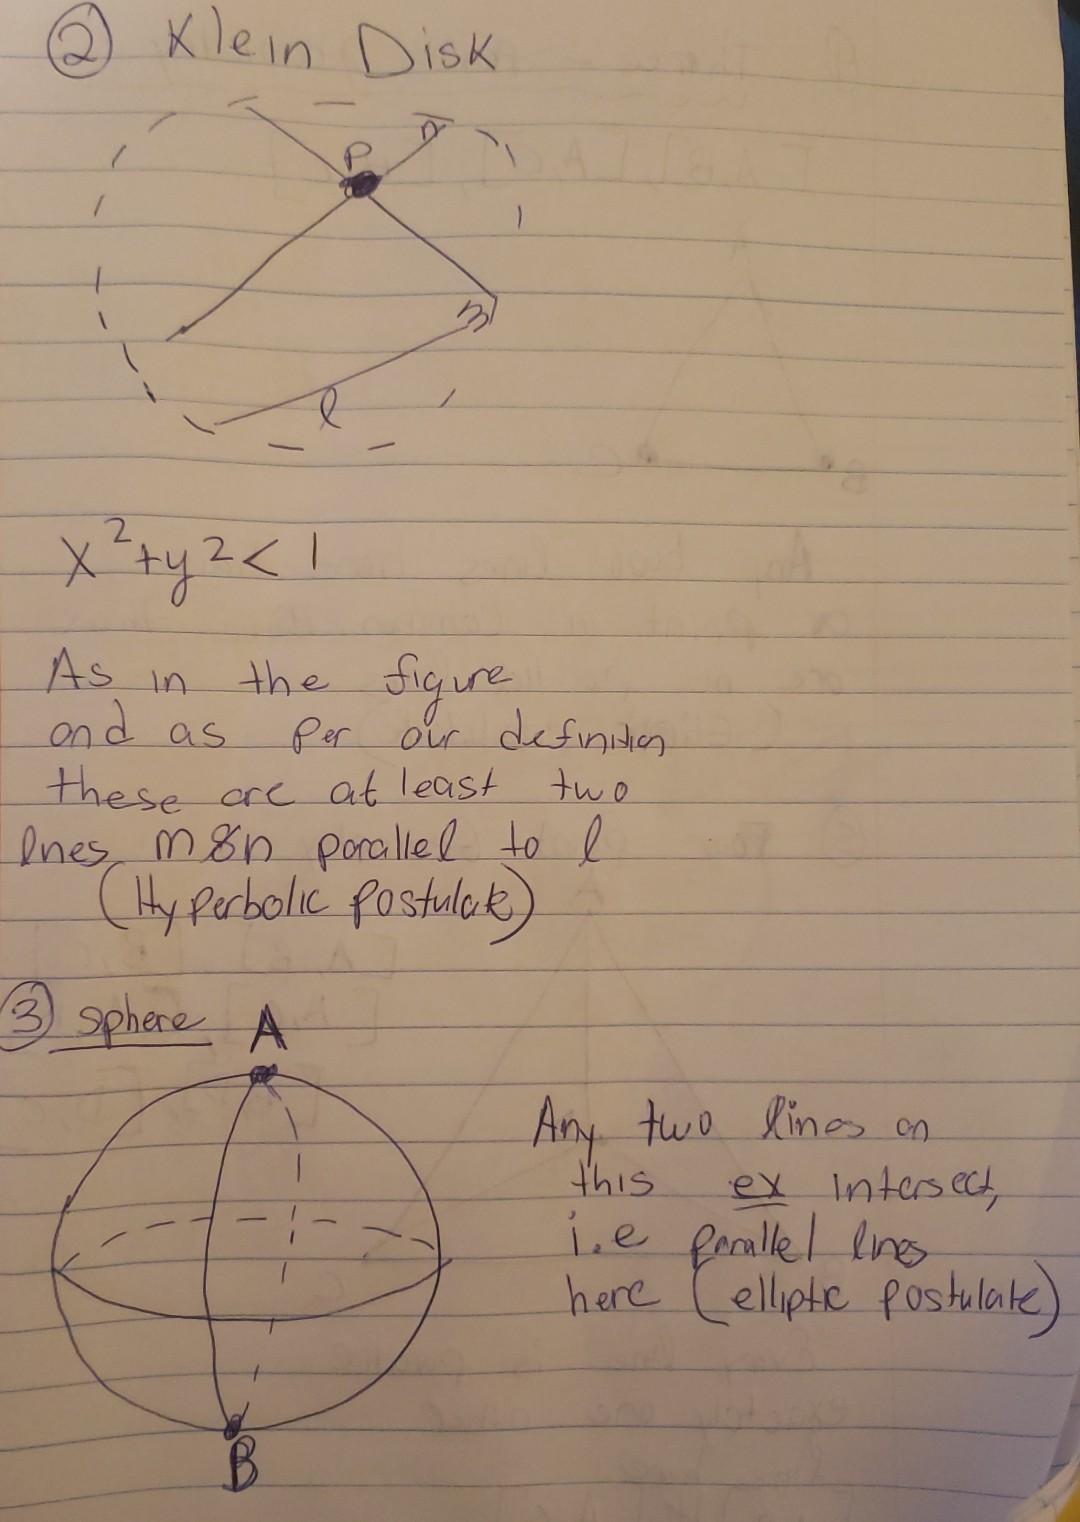 ② Klein Disk
P
n
m
l
x²+y²<1
As in the figure
and as per our definition
these are at least two
lnes m&n parallel to l
(Hyperbolic postulate)
③ sphere
A
B
Any two lines on
this ex intersect,
i.e parallel lines
here (elliptic postulate)